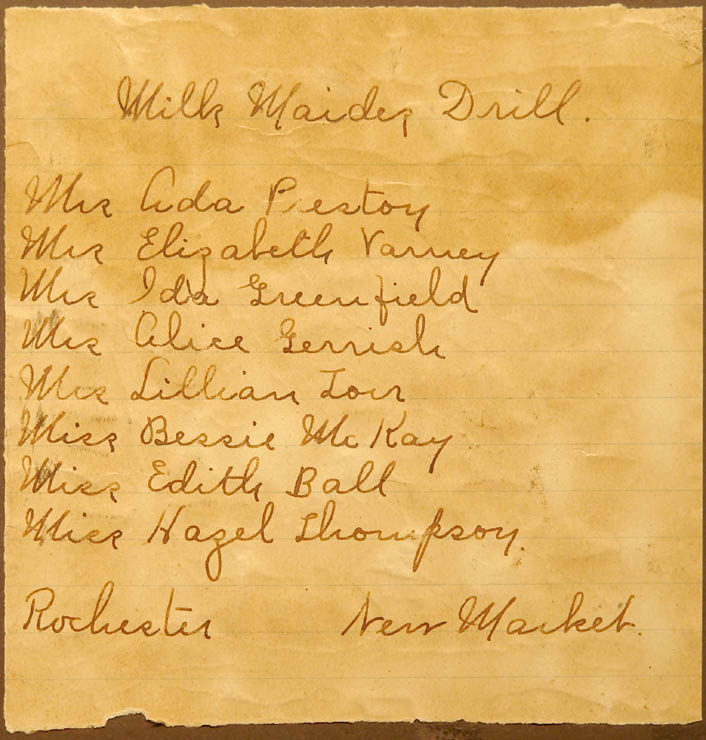 Milk Maides Drill.
Mrs Ada Preston
Mrs Elizabeth Varney
Mrs Ida Greenfield
Mrs Alice Gerrish
Mrs Lillian
Miss Bessie McKay
Miss Edith Ball
Miss Hazel Thompson
Rochester New Market.